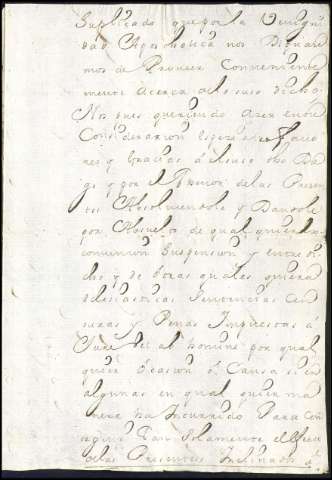 Suplicado que por la Venigni
dad Apostolica nos Dignare
mos de Proveer Conveniente
mente Acerca de lo suso dicho
Nos pues queriendo Azer en este
favo
res y Gracias á el suso dho
y por el Thenor de las Presen
tes Absolviendole y Dandole
por Absuelto de qual quier ex
comunion Suspension y entredi
cho y de otras quales quiera
eclesiasticas Sentencias Cen
suras y Penas Impuestas á
Jure vel ab homine por qual
quier Ocasion ó Causa si en
algunas en qual quier ma
nera ha Incurrido Para Con
seguir Tan Solamente el efecto
de las Presentes Inclinados